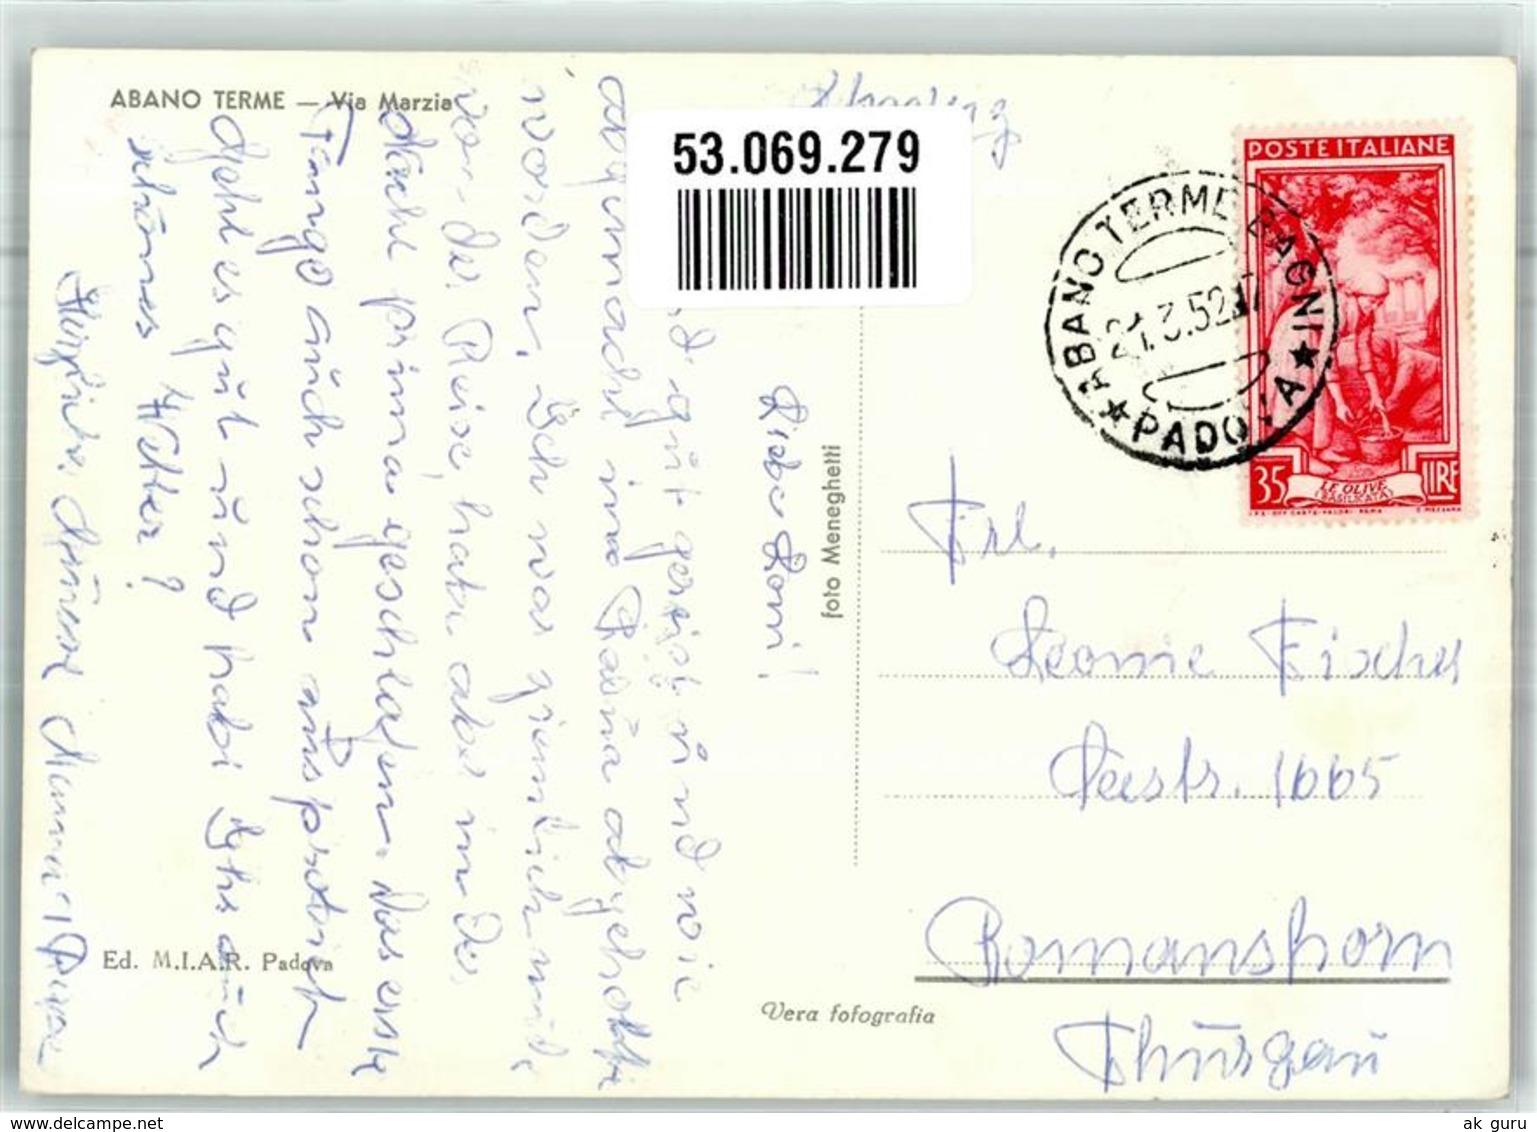 ABANO TERME — Via Marzia
53.069.279
POSTE ITALIANE
ABANO TERME BAGNI
3.52
★ PADOVA ★
35 LIRE
LE OLIVE
(BASILICATA)
foto Meneghetti
Ed. M.I.A.R. Padova
Vera fotografia
Frl.
Leonie Fischer
1665
Romanshorn
Thurgau
Liebe Loni!
gut gereist und wie
abgemacht in Padua abgeholt
worden. Ich war ziemlich müde
von der Reise, habe aber in der
Nacht prima geschlafen. Das erste
Fango auch schon ausprobiert.
Geht es gut und habt Ihr auch
schönes Wetter?
www.delcampe.net
ak_guru